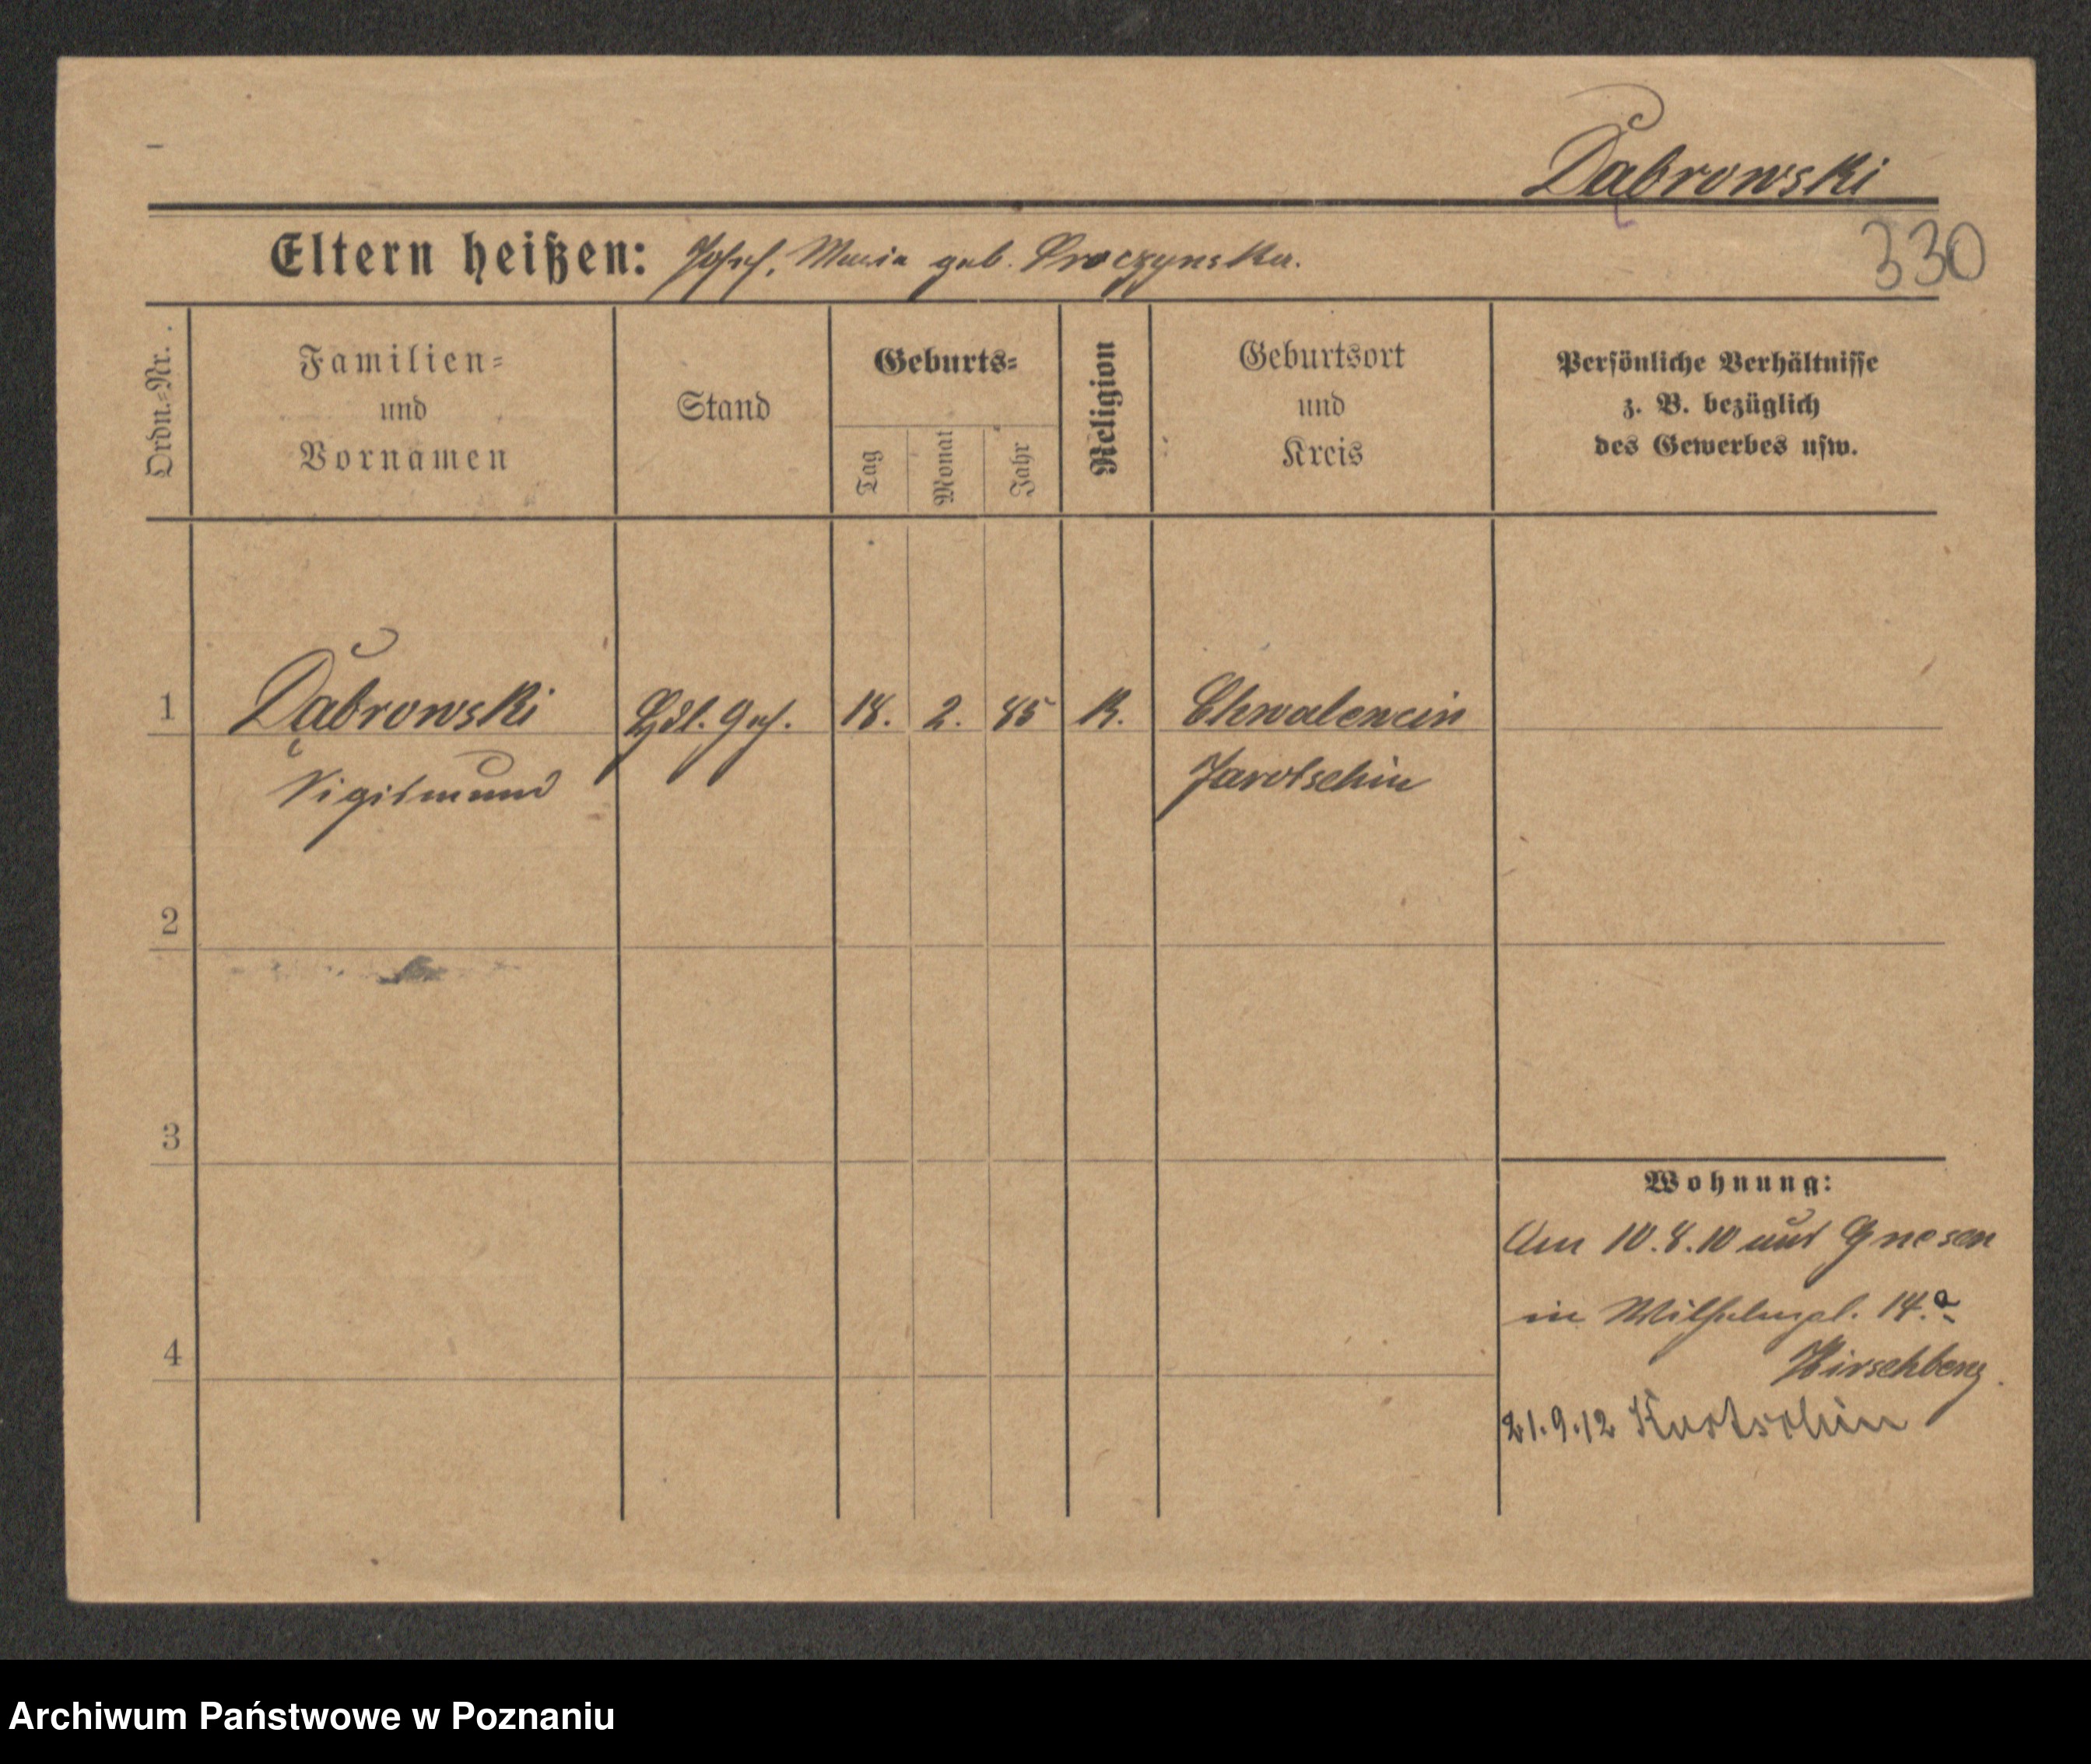 Dąbrowski
330
Eltern heißen: Josef, Maria geb. Proczynska.
Ordn.-Nr.
Familien- und Vornamen
Stand
Geburts-
Tag
Monat
Jahr
Religion
Geburtsort und Kreis
Persönliche Verhältnisse
z. B. bezüglich
des Gewerbes usw.
1 Dąbrowski Hdl. Geh. 18. 2. 85 K. Chwalencin
Sigismund Jarotschin
2
3
Wohnung:
Am 10.8.10 aus Gnesen
in Wilhelmspl. 14.a
4
Hirschberg.
21.9.12 Kostschin
Archiwum Państwowe w Poznaniu